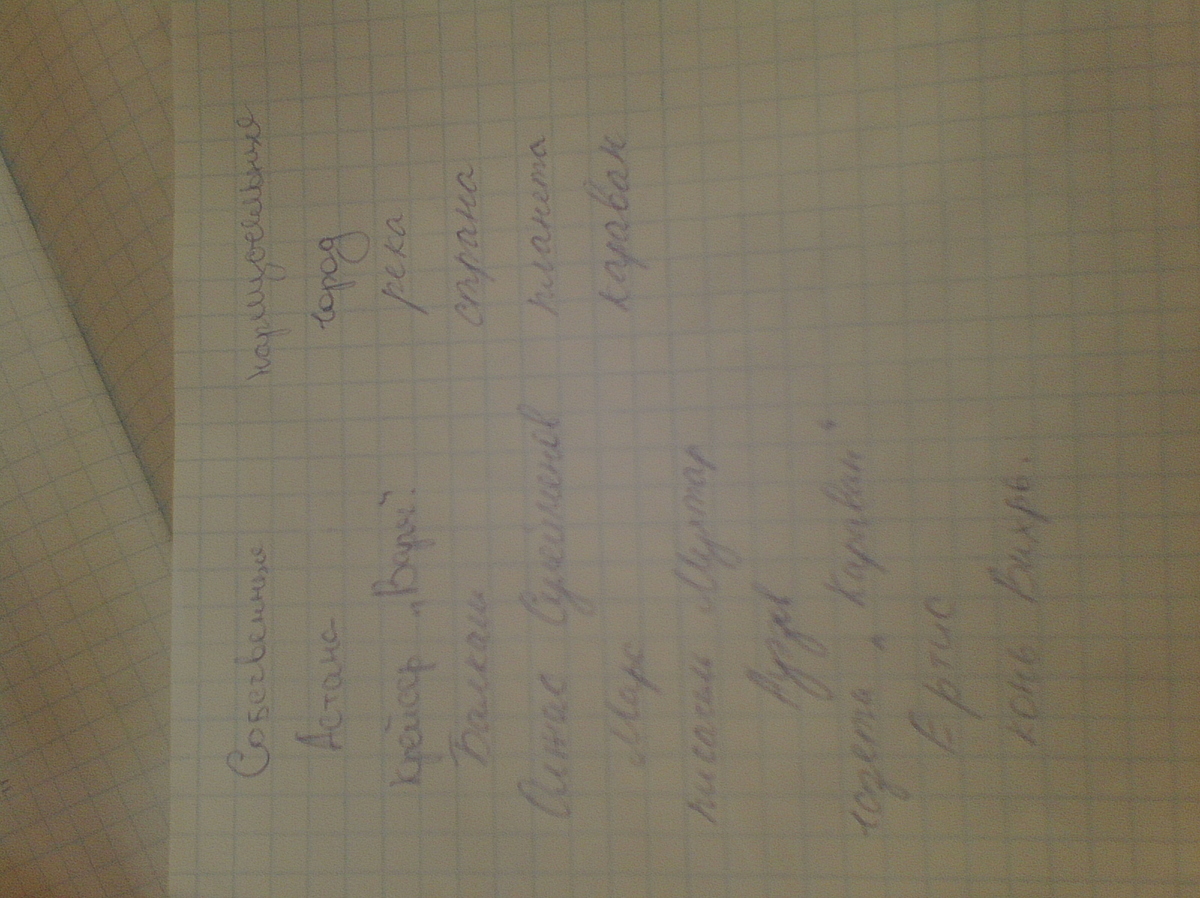 Собственные нарицательные
Астана город
Крейсер „Варяг". река
Балкаши страна
Олжас Сулейменов планета
Марс караван
писатель Мухтар
Ауэзов
газета „Караван"
Ертис
конь Вихрь.